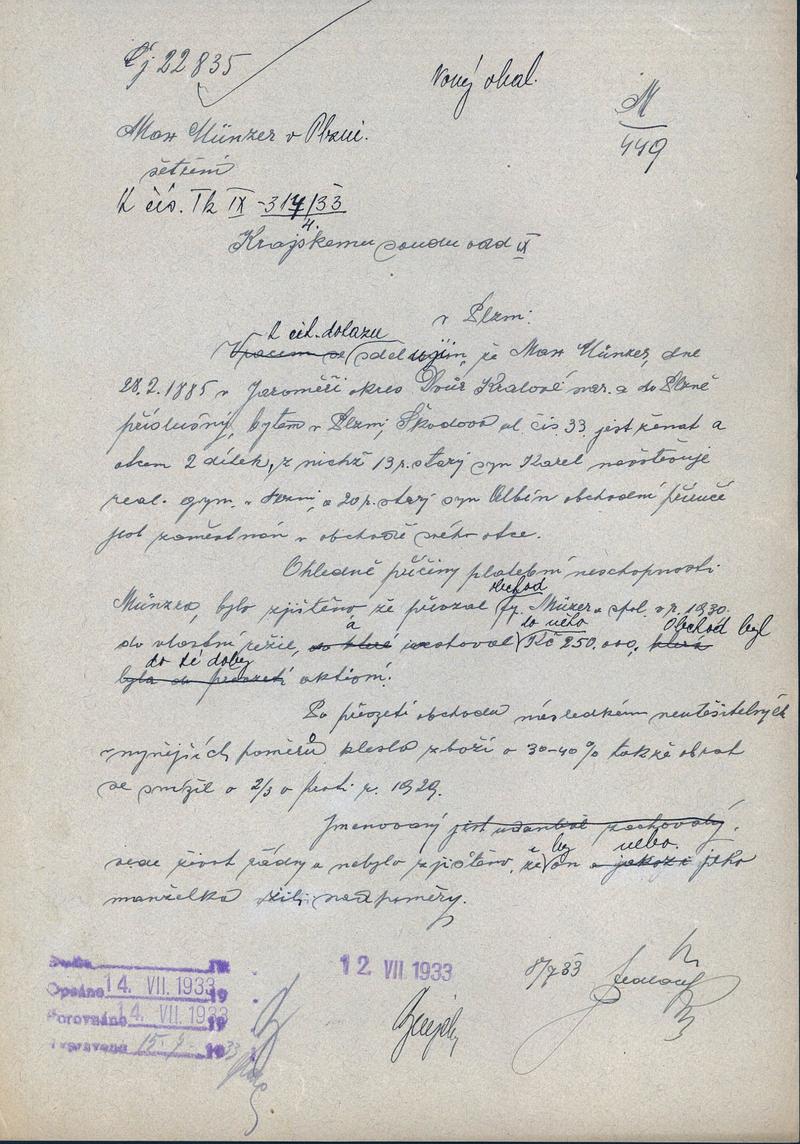 Čj 22835
Nový obal.
M
449
Max Münzer v Plzni.
šetření
K čís. Tk IX - 314/33
4.
Krajskému soudu odd IX
v Plzni.
K cit. dotazu
Vracem se sděluji, že Max Münzer, dne
28.2.1885 v Jaroměři okres Dvůr Králové nar. a do Plzně
příslušný, bytem v Plzni, Škodova ul. čís. 33. jest ženat a
otcem 2 dítek, z nichž 13 r. starý syn Karel navštěvuje
real. gym. v Plzni, a 20 r. starý syn Albín obchodní příručí
jest zaměstnán v obchodě svého otce.
Ohledně příčiny platební neschopnosti
obchod
Münzra, bylo zjištěno že převzal fy. Münzer a spol. v r. 1930.
a do něho Obchod byl
do vlastní režie, do které investoval Kč 250.000, která
do té doby
byla do převzetí aktivní.
Po převzetí obchodu následkem neutěšitelných
nynějších poměrů kleslo zboží o 30-40% takže obrat
se snížil o 2/3 o proti r. 1929.
Jmenovaný jest zachovalý,
by nebo
vede život řádný a nebylo zjištěno, že on a jakož i jeho
manželka žili nad poměry.
12. VII 1933
8/7 33
Opsáno 14. VII. 1933 19
Porovnáno 14. VII. 1933 19
Vypraveno 15. 7. 1933